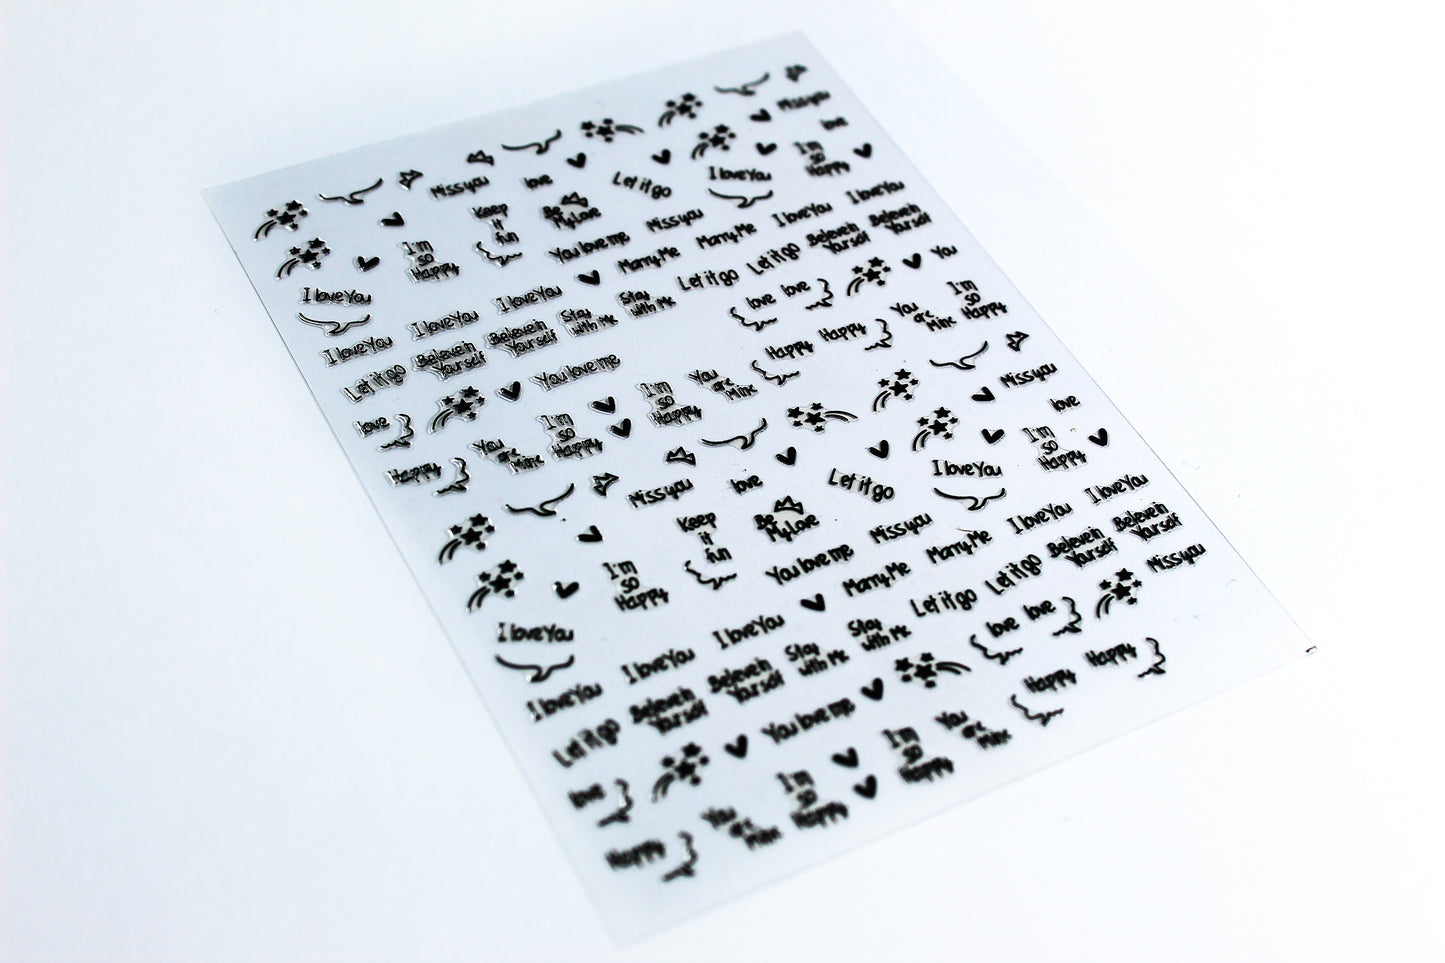 Miss you
love
Miss you
love
Let it go
I love You
I'm
so
Happy
Keep
it
fun
Be
My Love
Miss you
I love You
I love You
I'm
so
Happy
You love me
Marry Me
Marry Me
Believe in
Yourself
Believe in
Yourself
I love You
I love You
I love You
Let it go
Let it go
You
I love You
Believe in
Yourself
Believe in
Yourself
Stay
with Me
Stay
with Me
love
love
You
are
Mine
I'm
so
Happy
Let it go
You love me
Happy
Happy
love
I'm
so
Happy
You
are
Mine
Miss you
Happy
You
are
Mine
I'm
so
Happy
love
Miss you
love
Let it go
I love You
I'm
so
Happy
Keep
it
fun
Be
My Love
Miss you
I love You
I love You
I'm
so
Happy
You love me
Marry Me
Marry Me
Believe in
Yourself
Believe in
Yourself
I love You
I love You
I love You
Let it go
Let it go
Miss you
I love You
Believe in
Yourself
Believe in
Yourself
Stay
with Me
Stay
with Me
love
love
Let it go
You love me
Happy
Happy
love
I'm
so
Happy
You
are
Mine
Happy
You
are
Mine
I'm
so
Happy